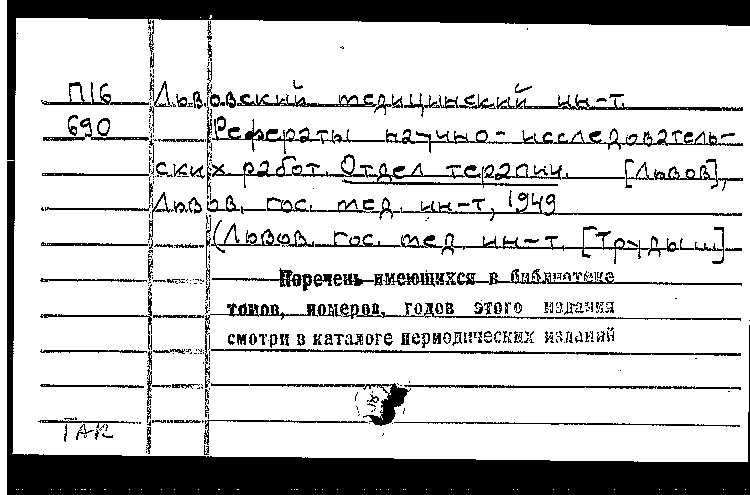 П16 Львовский медицинский ин-т.
690 Рефераты научно-исследователь-
ских работ. Отдел терапии. [Львов],
Львов. гос. мед. ин-т, 1949
(Львов. гос. мед. ин-т. [Труды]
Перечень имеющихся в библиотеке
томов, номеров, годов этого издания
смотри в каталоге периодических изданий